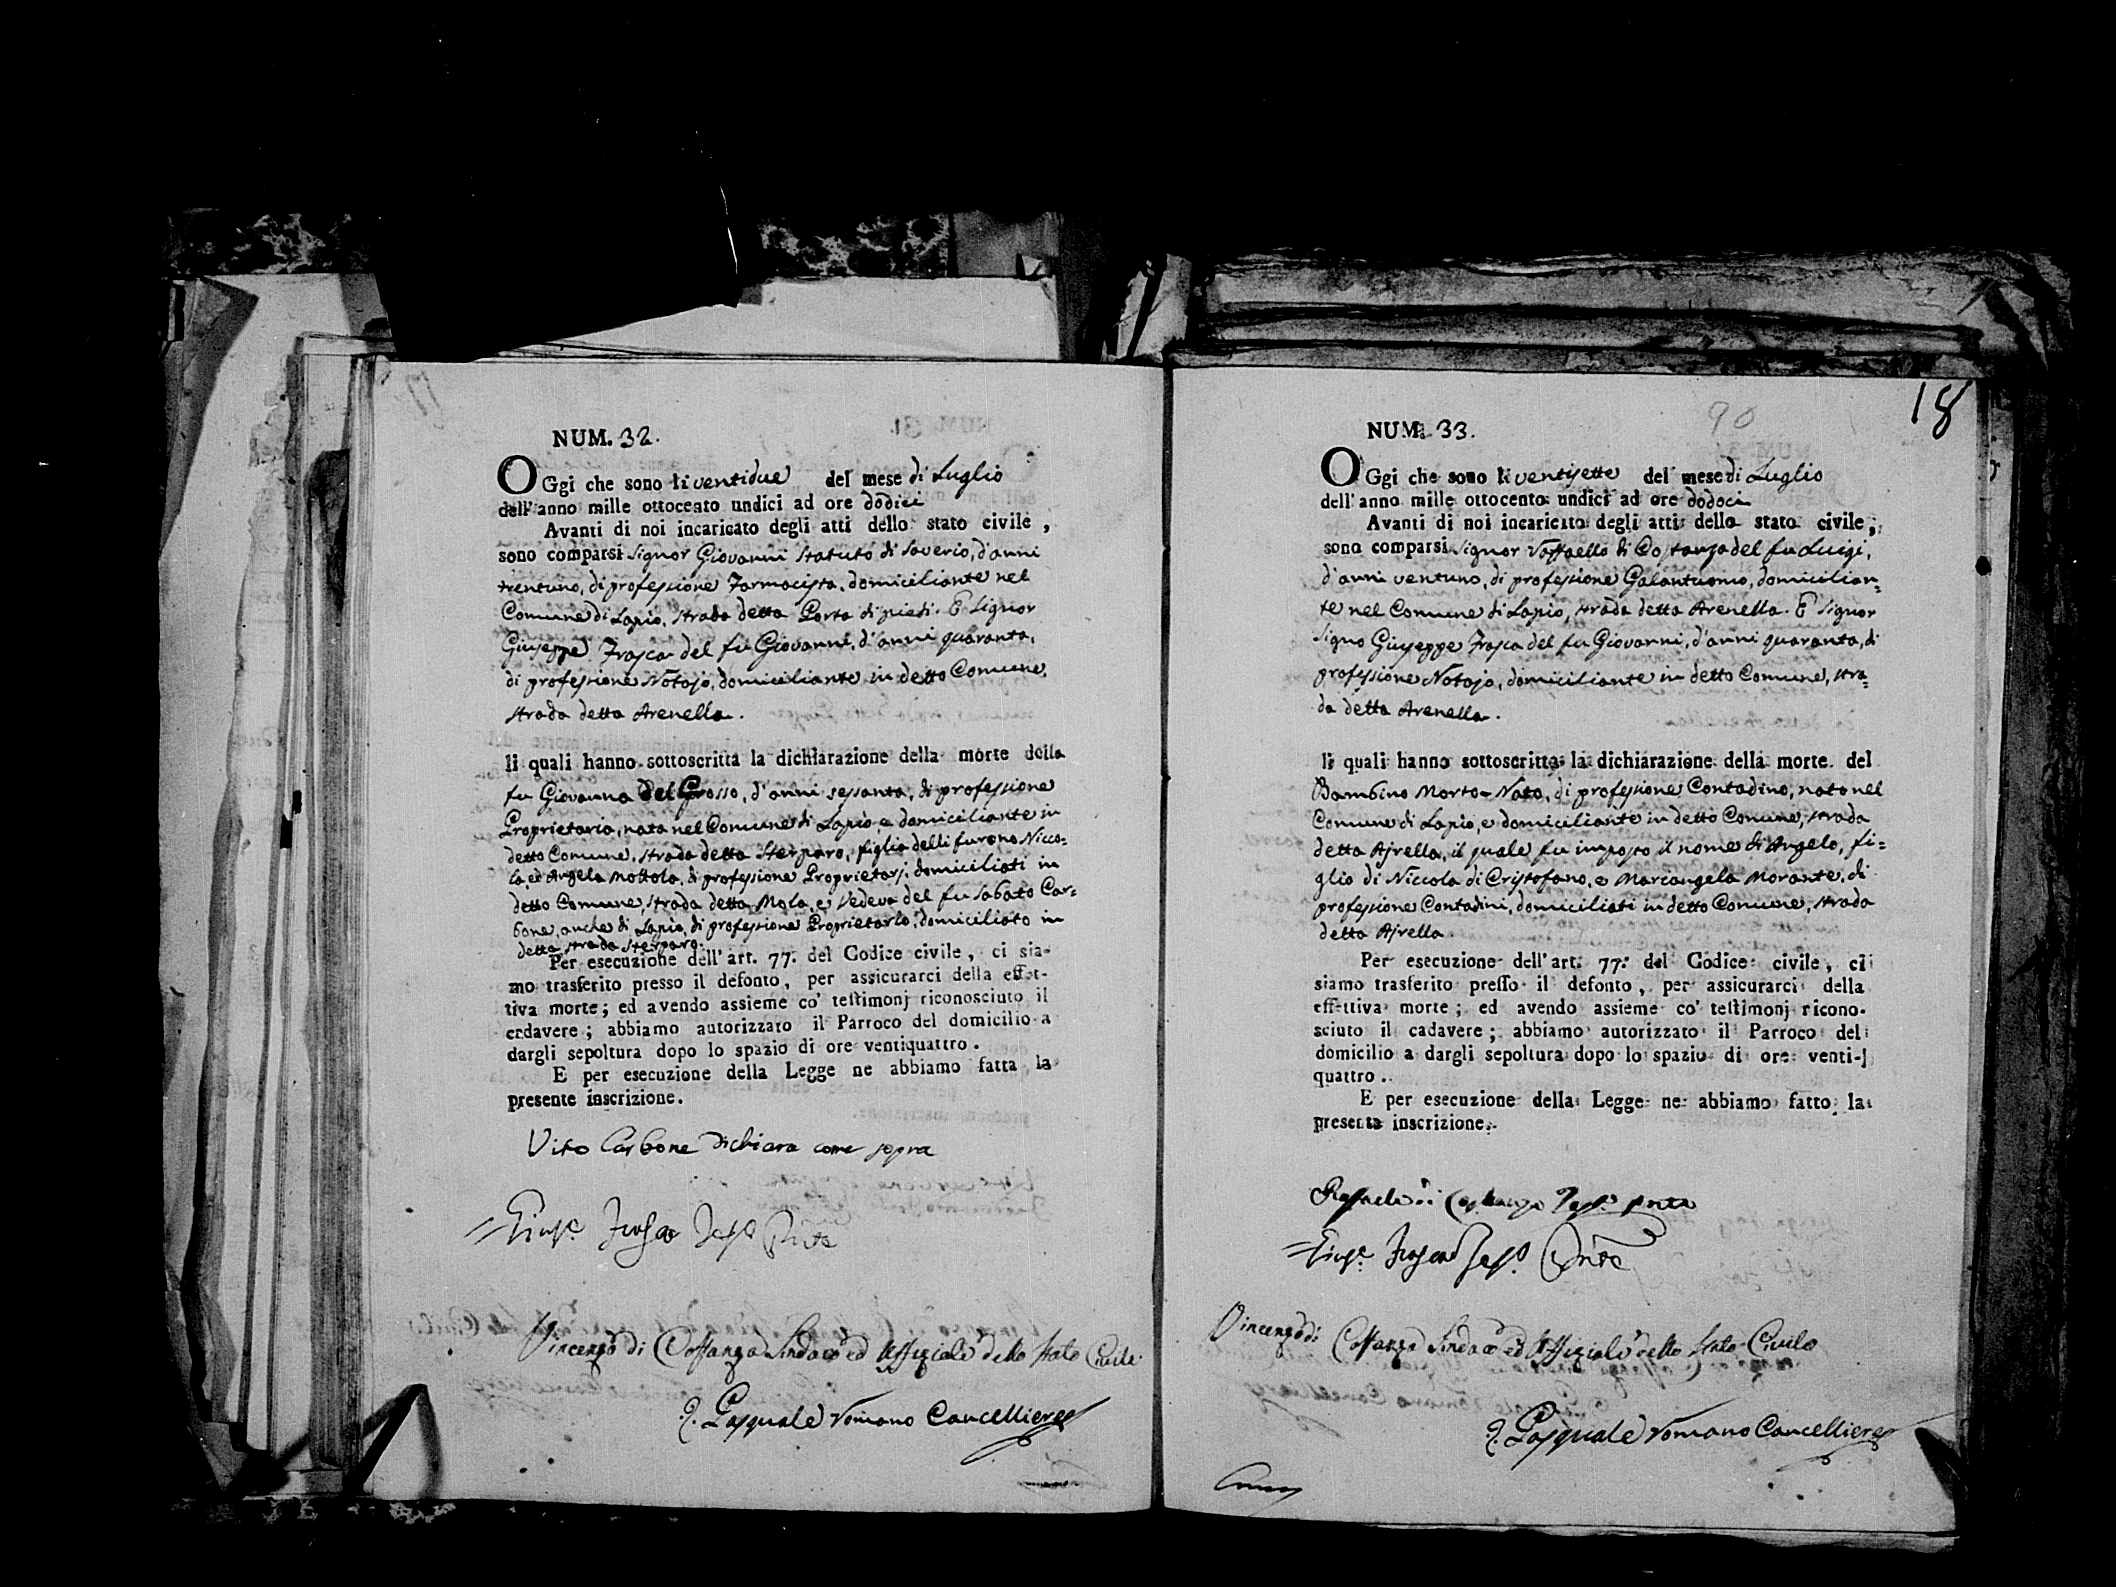 NUM. 32.
OGgi che sono li ventidue del mese di Luglio
dell'anno mille ottocento undici ad ore dodici
Avanti di noi incaricato degli atti dello stato civile,
sono comparsi Signor Giovanni Statuto di Saverio, d'anni
trentuno, di professione Farmacista, domiciliante nel
Comune di Lapio, strada detta Porta di piedi. E Signor
Giuseppe Frasca del fu Giovanni, d'anni quaranta,
di professione Notajo, domiciliante in detto Comune,
strada detta Arenella.
li quali hanno sottoscritta la dichiarazione della morte della
fu Giovanna del Grosso, d'anni sessanta, di professione
Proprietaria, nata nel Comune di Lapio, e domiciliante in
detto Comune, strada detta Sterparo, figlia delli furono Nicco-
la, ed Angela Mottola, di professione Proprietarj, domiciliati in
detto Comune, strada detta Mola, e Vedova del fu Sabato Car=
bone, anche di Lapio, di professione Proprietario, domiciliato in
detta strada Sterparo.
Per esecuzione dell'art. 77. del Codice civile, ci sia-
mo trasferito presso il defonto, per assicurarci della effet-
tiva morte; ed avendo assieme co' testimonj riconosciuto il
cadavere; abbiamo autorizzato il Parroco del domicilio a
dargli sepoltura dopo lo spazio di ore ventiquattro.
E per esecuzione della Legge ne abbiamo fatta la
presente inscrizione.
Vito Carbone dichiara come sopra
Giusᵉ Frasca Tesᵒ Pñte
Vincenzo di Costanza Sindaco ed Uffiziale dello Stato Civile
Pasquale Romano Cancelliere
18
90
NUM. 33.
OGgi che sono li ventisette del mese di Luglio
dell'anno mille ottocento undici ad ore dodoci
Avanti di noi incaricato degli atti dello stato civile,
sono comparsi Signor Raffaello di Costanza del fu Luigi,
d'anni ventuno, di professione Galantuomo, domicilian=
te nel Comune di Lapio, strada detta Arenella. E Signor
Signo Giuseppe Frasca del fu Giovanni, d'anni quaranta, di
professione Notajo, domiciliante in detto Comune, stra=
da detta Arenella.
li quali hanno sottoscritta la dichiarazione della morte del
Bambino Morto-Nato, di professione Contadino, nato nel
Comune di Lapio, e domiciliante in detto Comune, strada
detta Ajrella, il quale fu imposto il nome di Angelo, fi=
glio di Niccola di Cristofano, e Mariangela Morante, di
professione Contadini, domiciliati in detto Comune, strada
detta Ajrella
Per esecuzione dell'art. 77. del Codice civile, ci
siamo trasferito presso il defonto, per assicurarci della
effettiva morte; ed avendo assieme co' testimonj ricono-
sciuto il cadavere; abbiamo autorizzato il Parroco del
domicilio a dargli sepoltura dopo lo spazio di ore venti-
quattro.
E per esecuzione della Legge ne abbiamo fatto la
presente inscrizione.
Raffaele di Costanza Tesᵒ pnte
Giusᵉ Frasca Tesᵒ Pñte
Vincenzo di Costanza Sindaco ed Uffiziale dello Stato Civile
Pasquale Romano Cancelliere